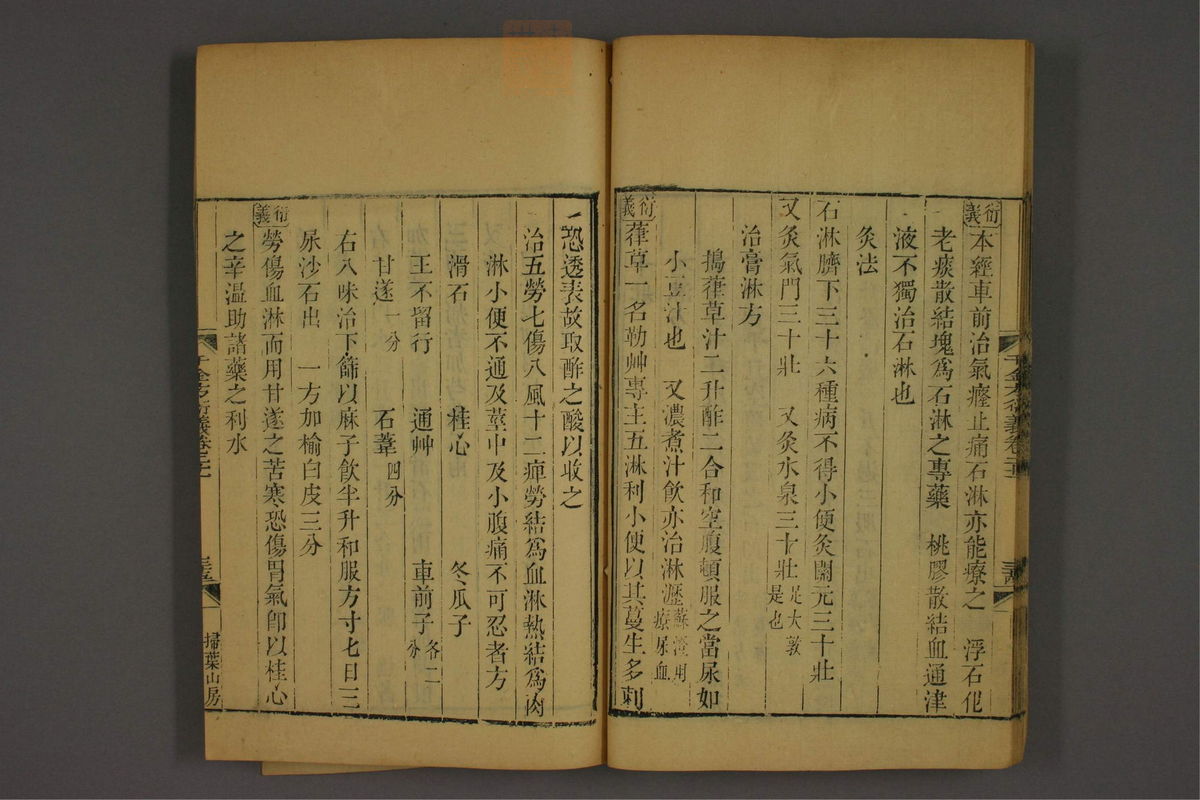 衍義 本經車前治氣癃止痛石淋亦能療之 浮石化
老痰散結塊爲石淋之專藥 桃膠散結血通津
液不獨治石淋也
灸法
石淋臍下三十六種病不得小便灸關元三十壯
又灸氣門三十壯 又灸水泉三十壯足大敦是也
治膏淋方
搗葎草汁二升酢二合和空腹頓服之當尿如
小豆汁也 又濃煮汁飲亦治淋瀝蘇澄用療尿血
衍義 葎草一名勒艸專主五淋利小便以其蔓生多刺
恐透表故取酢之酸以收之
治五勞七傷八風十二痺勞結爲血淋熱結爲肉
淋小便不通及莖中及小腹痛不可忍者方
滑石 桂心 冬瓜子
王不留行 通艸 車前子各二分
甘遂一分 石葦四分
右八味治下篩以麻子飲半升和服方寸七日三
尿沙石出 一方加榆白皮三分
衍義 勞傷血淋而用甘遂之苦寒恐傷胃氣卽以桂心
之辛溫助諸藥之利水
千金方衍義卷
掃葉山房